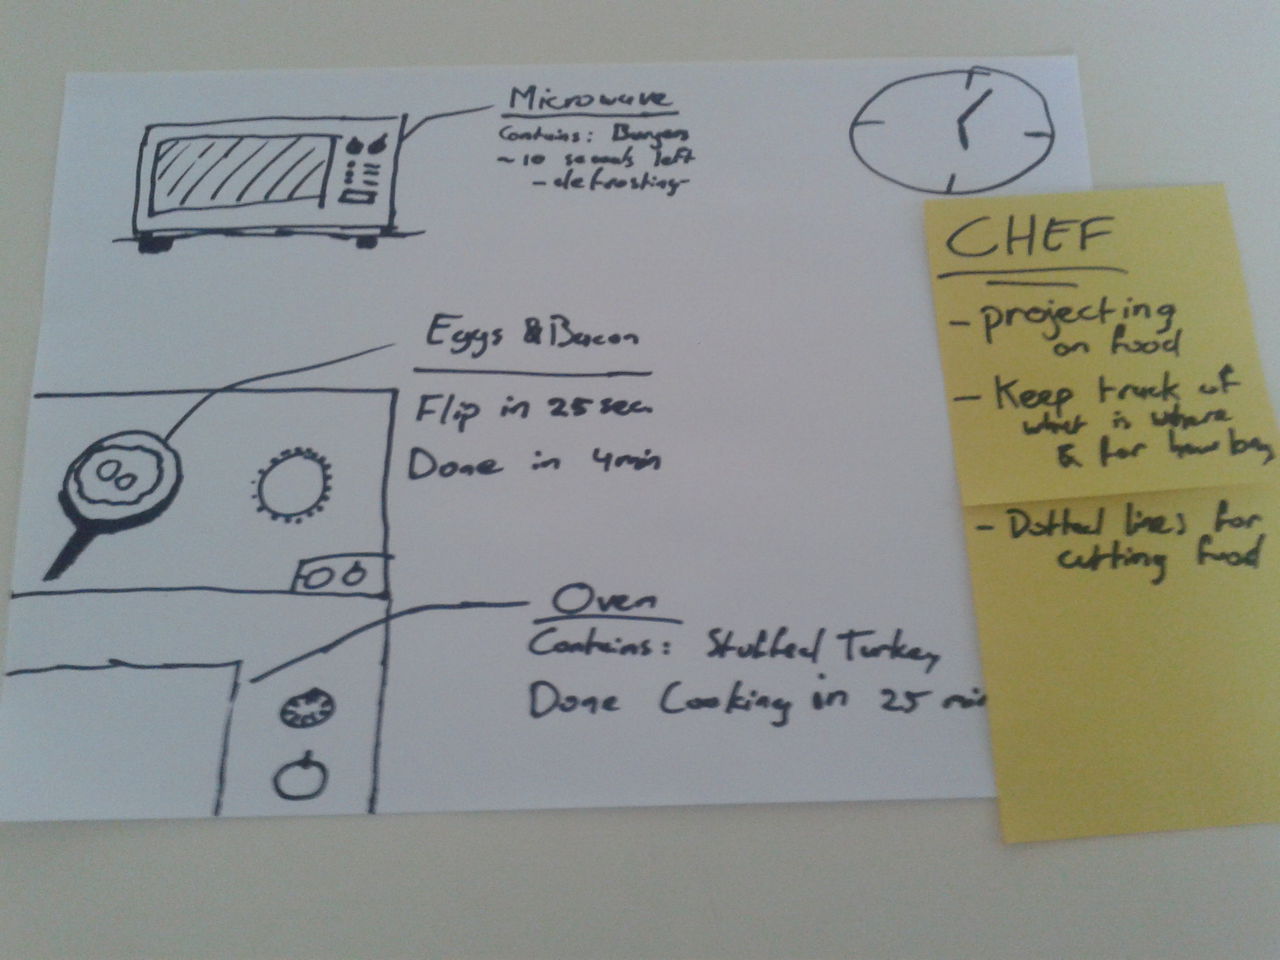 Microwave
Contains: Burgers
~10 seconds left
- defrosting-
Eggs & Bacon
Flip in 25 sec
Done in 4min
Oven
Contains: Stuffed Turkey
Done Cooking in 25 min
CHEF
- projecting
on food
- Keep track of
what is where
& for how long
- Dotted lines for
cutting food